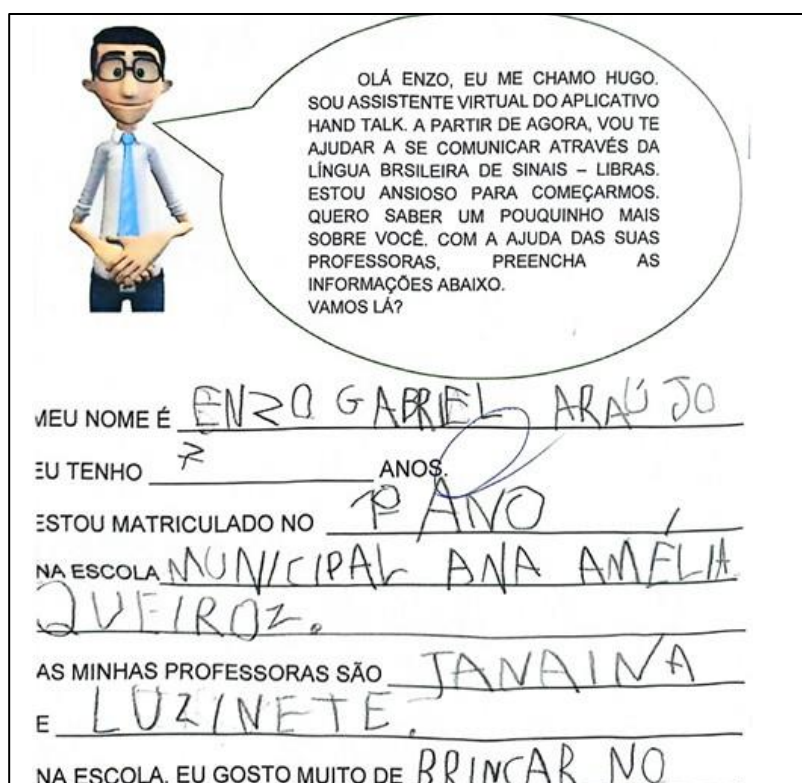 OLÁ ENZO, EU ME CHAMO HUGO.
SOU ASSISTENTE VIRTUAL DO APLICATIVO
HAND TALK. A PARTIR DE AGORA, VOU TE
AJUDAR A SE COMUNICAR ATRAVÉS DA
LÍNGUA BRSILEIRA DE SINAIS – LIBRAS.
ESTOU ANSIOSO PARA COMEÇARMOS.
QUERO SABER UM POUQUINHO MAIS
SOBRE VOCÊ. COM A AJUDA DAS SUAS
PROFESSORAS, PREENCHA AS
INFORMAÇÕES ABAIXO.
VAMOS LÁ?
MEU NOME É ENZO GABRIEL ARAÚJO
EU TENHO 7 ANOS.
ESTOU MATRICULADO NO 1º ANO,
NA ESCOLA MUNICIPAL ANA AMÉLIA
QUEIROZ.
AS MINHAS PROFESSORAS SÃO JANAINA
E LUZINETE.
NA ESCOLA, EU GOSTO MUITO DE BRINCAR NO